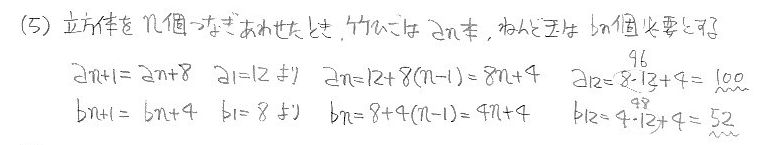 (5) 立方体を n個つなぎあわせたとき、竹ひごは an本、ねんど玉は bn個必要とする
an+1 = an+8 a1=12 より an=12+8(n-1)=8n+4 a12=8・12+4=100
96
bn+1 = bn+4 b1=8 より bn=8+4(n-1)=4n+4 b12=4・12+4=52
48